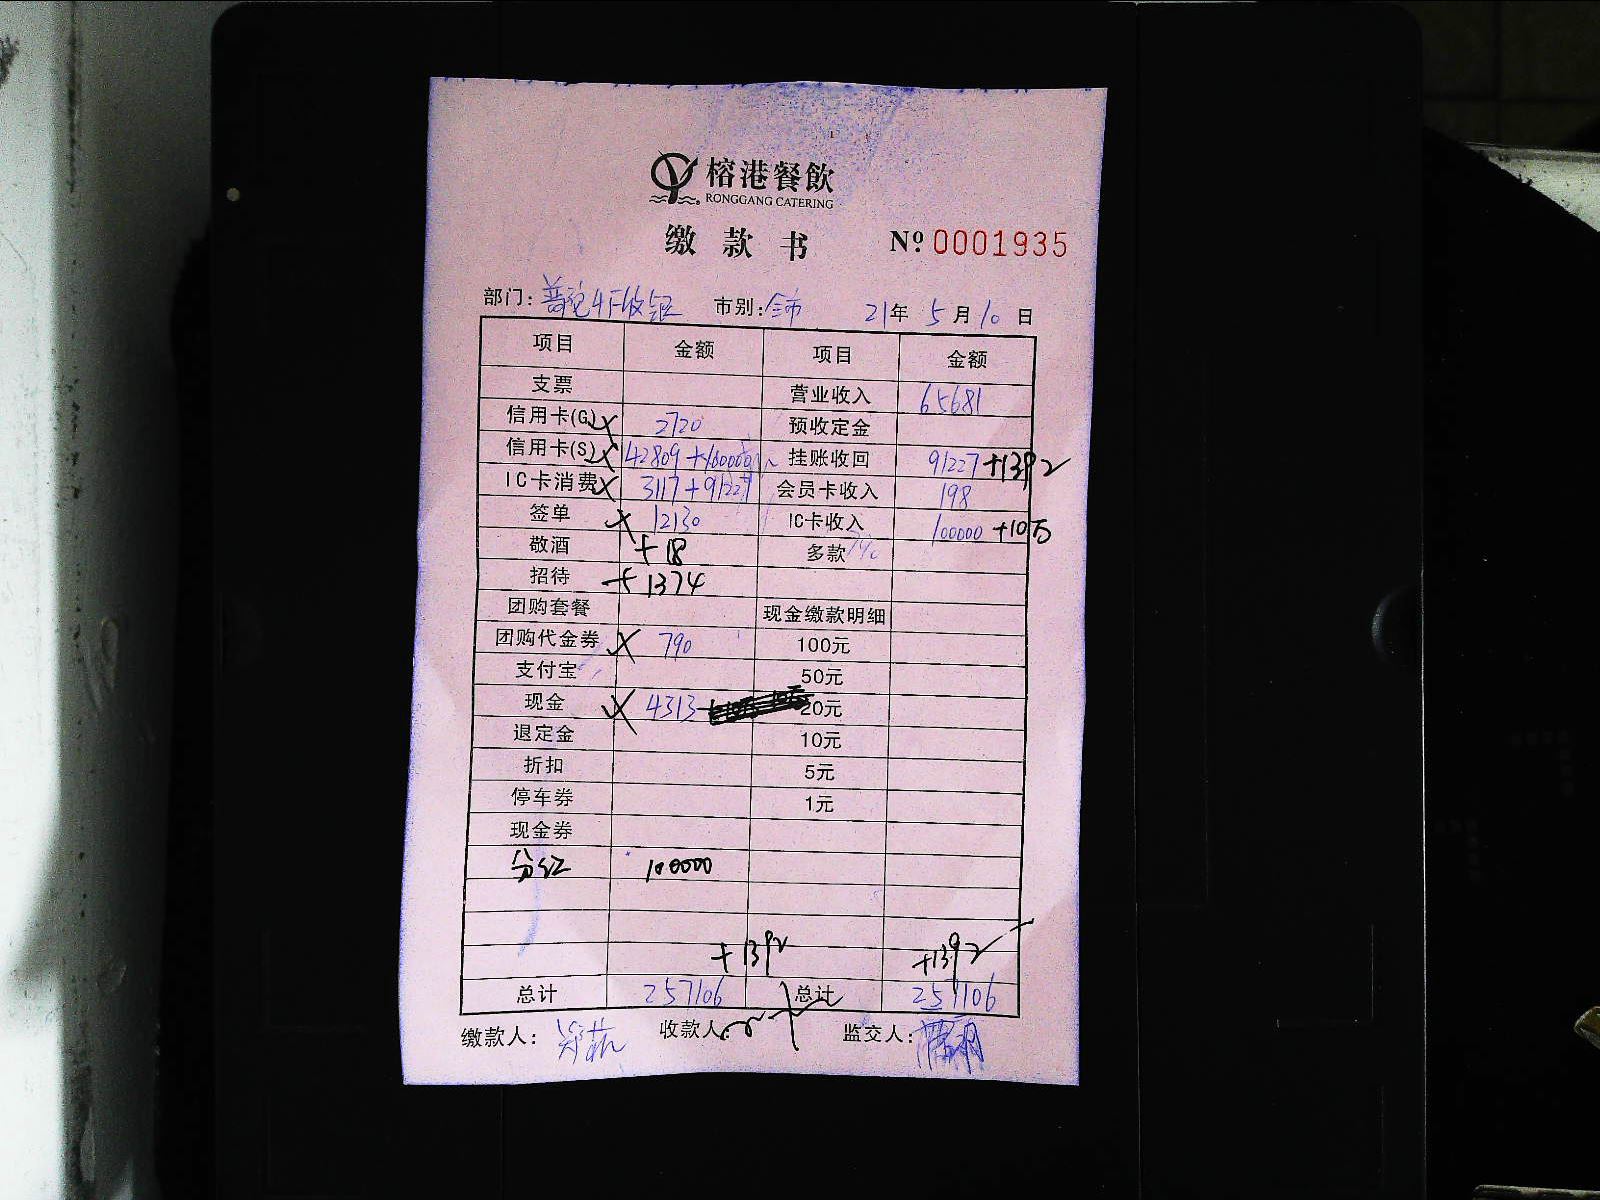 榕港餐飲
RONGGANG CATERING
缴款书 Nº 0001935
部门: 普陀4F收银 市别: 全市 21年 5月10日
项目 金额 项目 金额
支票 营业收入 65681
信用卡(G) 2720 预收定金
信用卡(S) 42809+100000 挂账收回 91227+1392
IC卡消费 3117+91227 会员卡收入 198
签单 12130 IC卡收入 100000+10万
敬酒 +18 多款
招待 +1374
团购套餐 现金缴款明细
团购代金券 790 100元
支付宝 50元
现金 4313 20元
退定金 10元
折扣 5元
停车券 1元
现金券
分红 100000
+1392 +1392
总计 257106 总计 257106
缴款人: 收款人: 监交人: